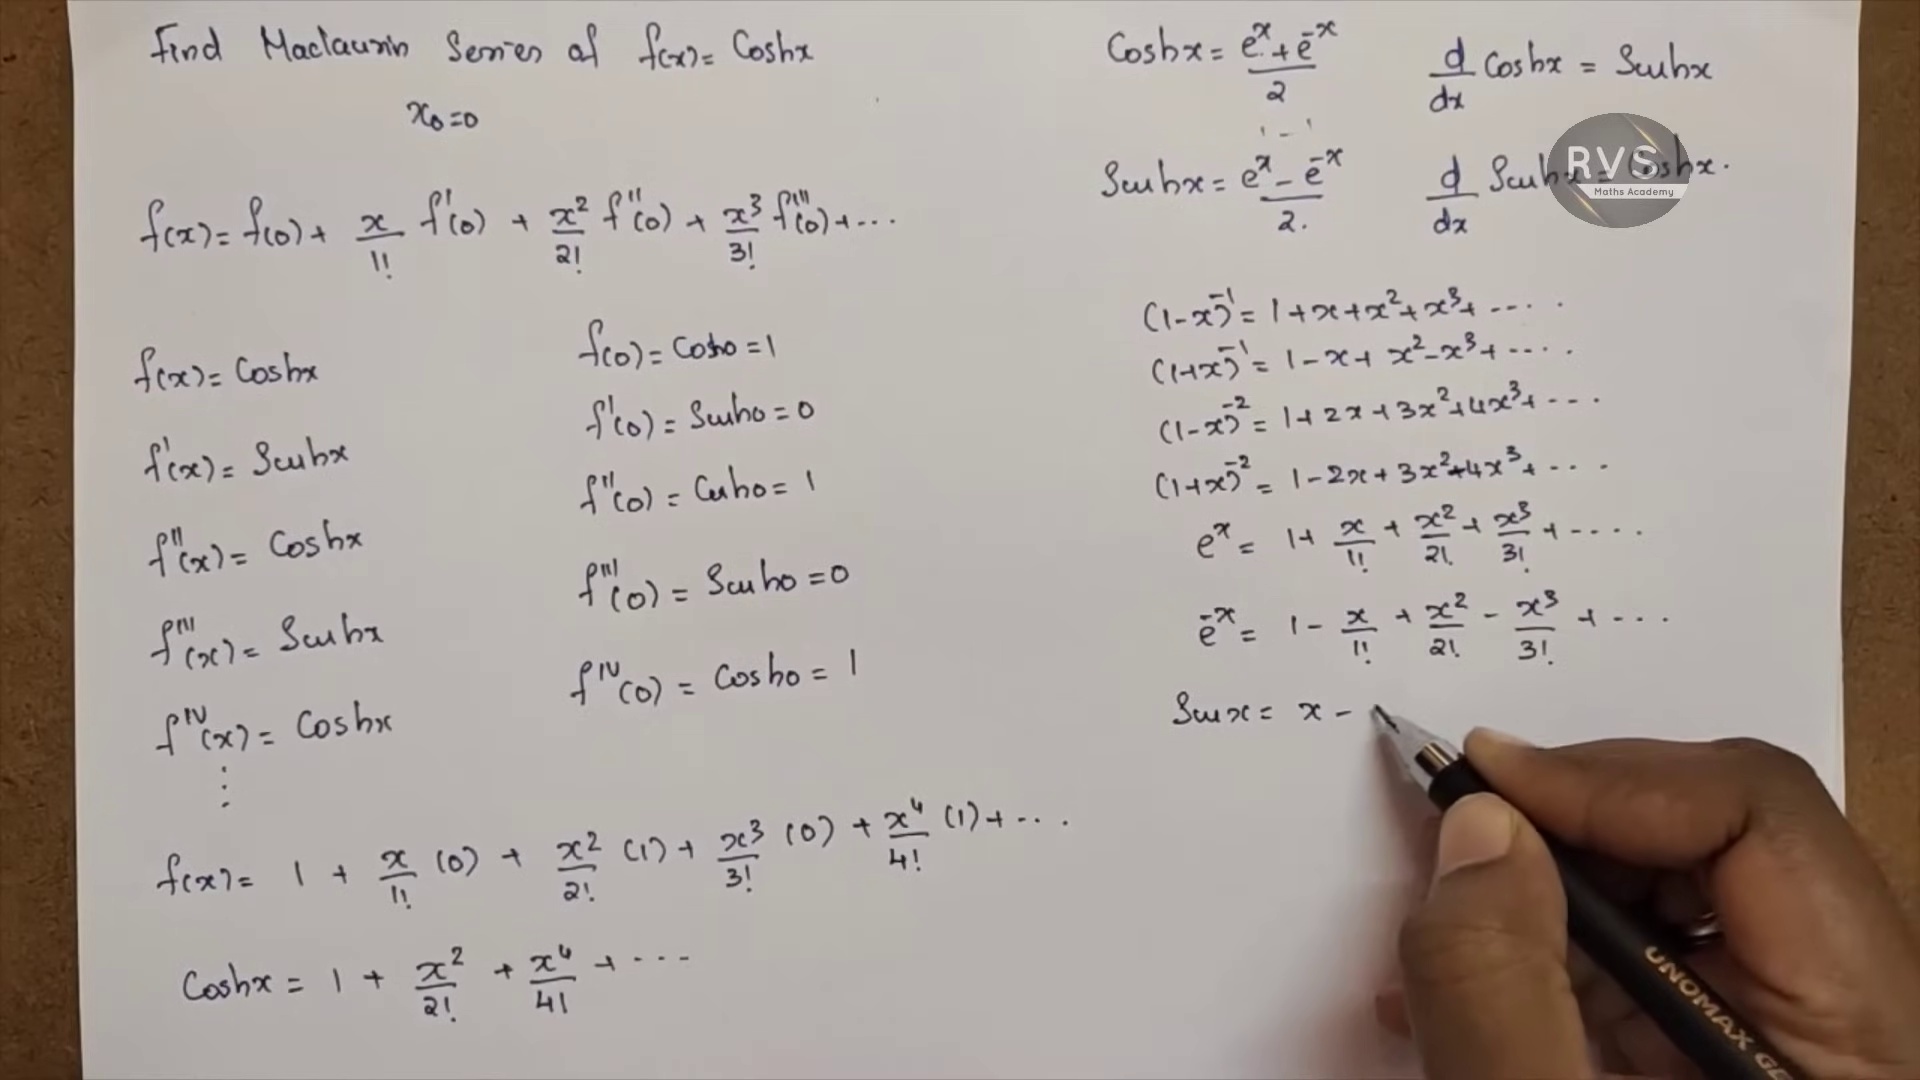 Find Maclaurin Series of f(x) = Coshx
x₀=0
f(x) = f(0) + x/1! f'(0) + x²/2! f''(0) + x³/3! f'''(0) + ...
f(x) = Coshx
f'(x) = Sinhx
f''(x) = Coshx
f'''(x) = Sinhx
f^IV(x) = Coshx
⋮
f(0) = Cosh0 = 1
f'(0) = Sinh0 = 0
f''(0) = Cosh0 = 1
f'''(0) = Sinh0 = 0
f^IV(0) = Cosh0 = 1
f(x) = 1 + x/1! (0) + x²/2! (1) + x³/3! (0) + x⁴/4! (1) + ...
Coshx = 1 + x²/2! + x⁴/4! + ...
Coshx = (e^x + e^-x)/2
d/dx Coshx = Sinhx
Sinhx = (e^x - e^-x)/2.
d/dx Sinhx = Coshx.
RVS
Maths Academy
(1-x)^-1 = 1+x+x²+x³+ ....
(1+x)^-1 = 1-x+x²-x³+ ....
(1-x)^-2 = 1+2x+3x²+4x³+ ...
(1+x)^-2 = 1-2x+3x²-4x³+ ....
e^x = 1+ x/1! + x²/2! + x³/3! + ....
e^-x = 1 - x/1! + x²/2! - x³/3! + ...
Sinx = x -
UNOMAX GE